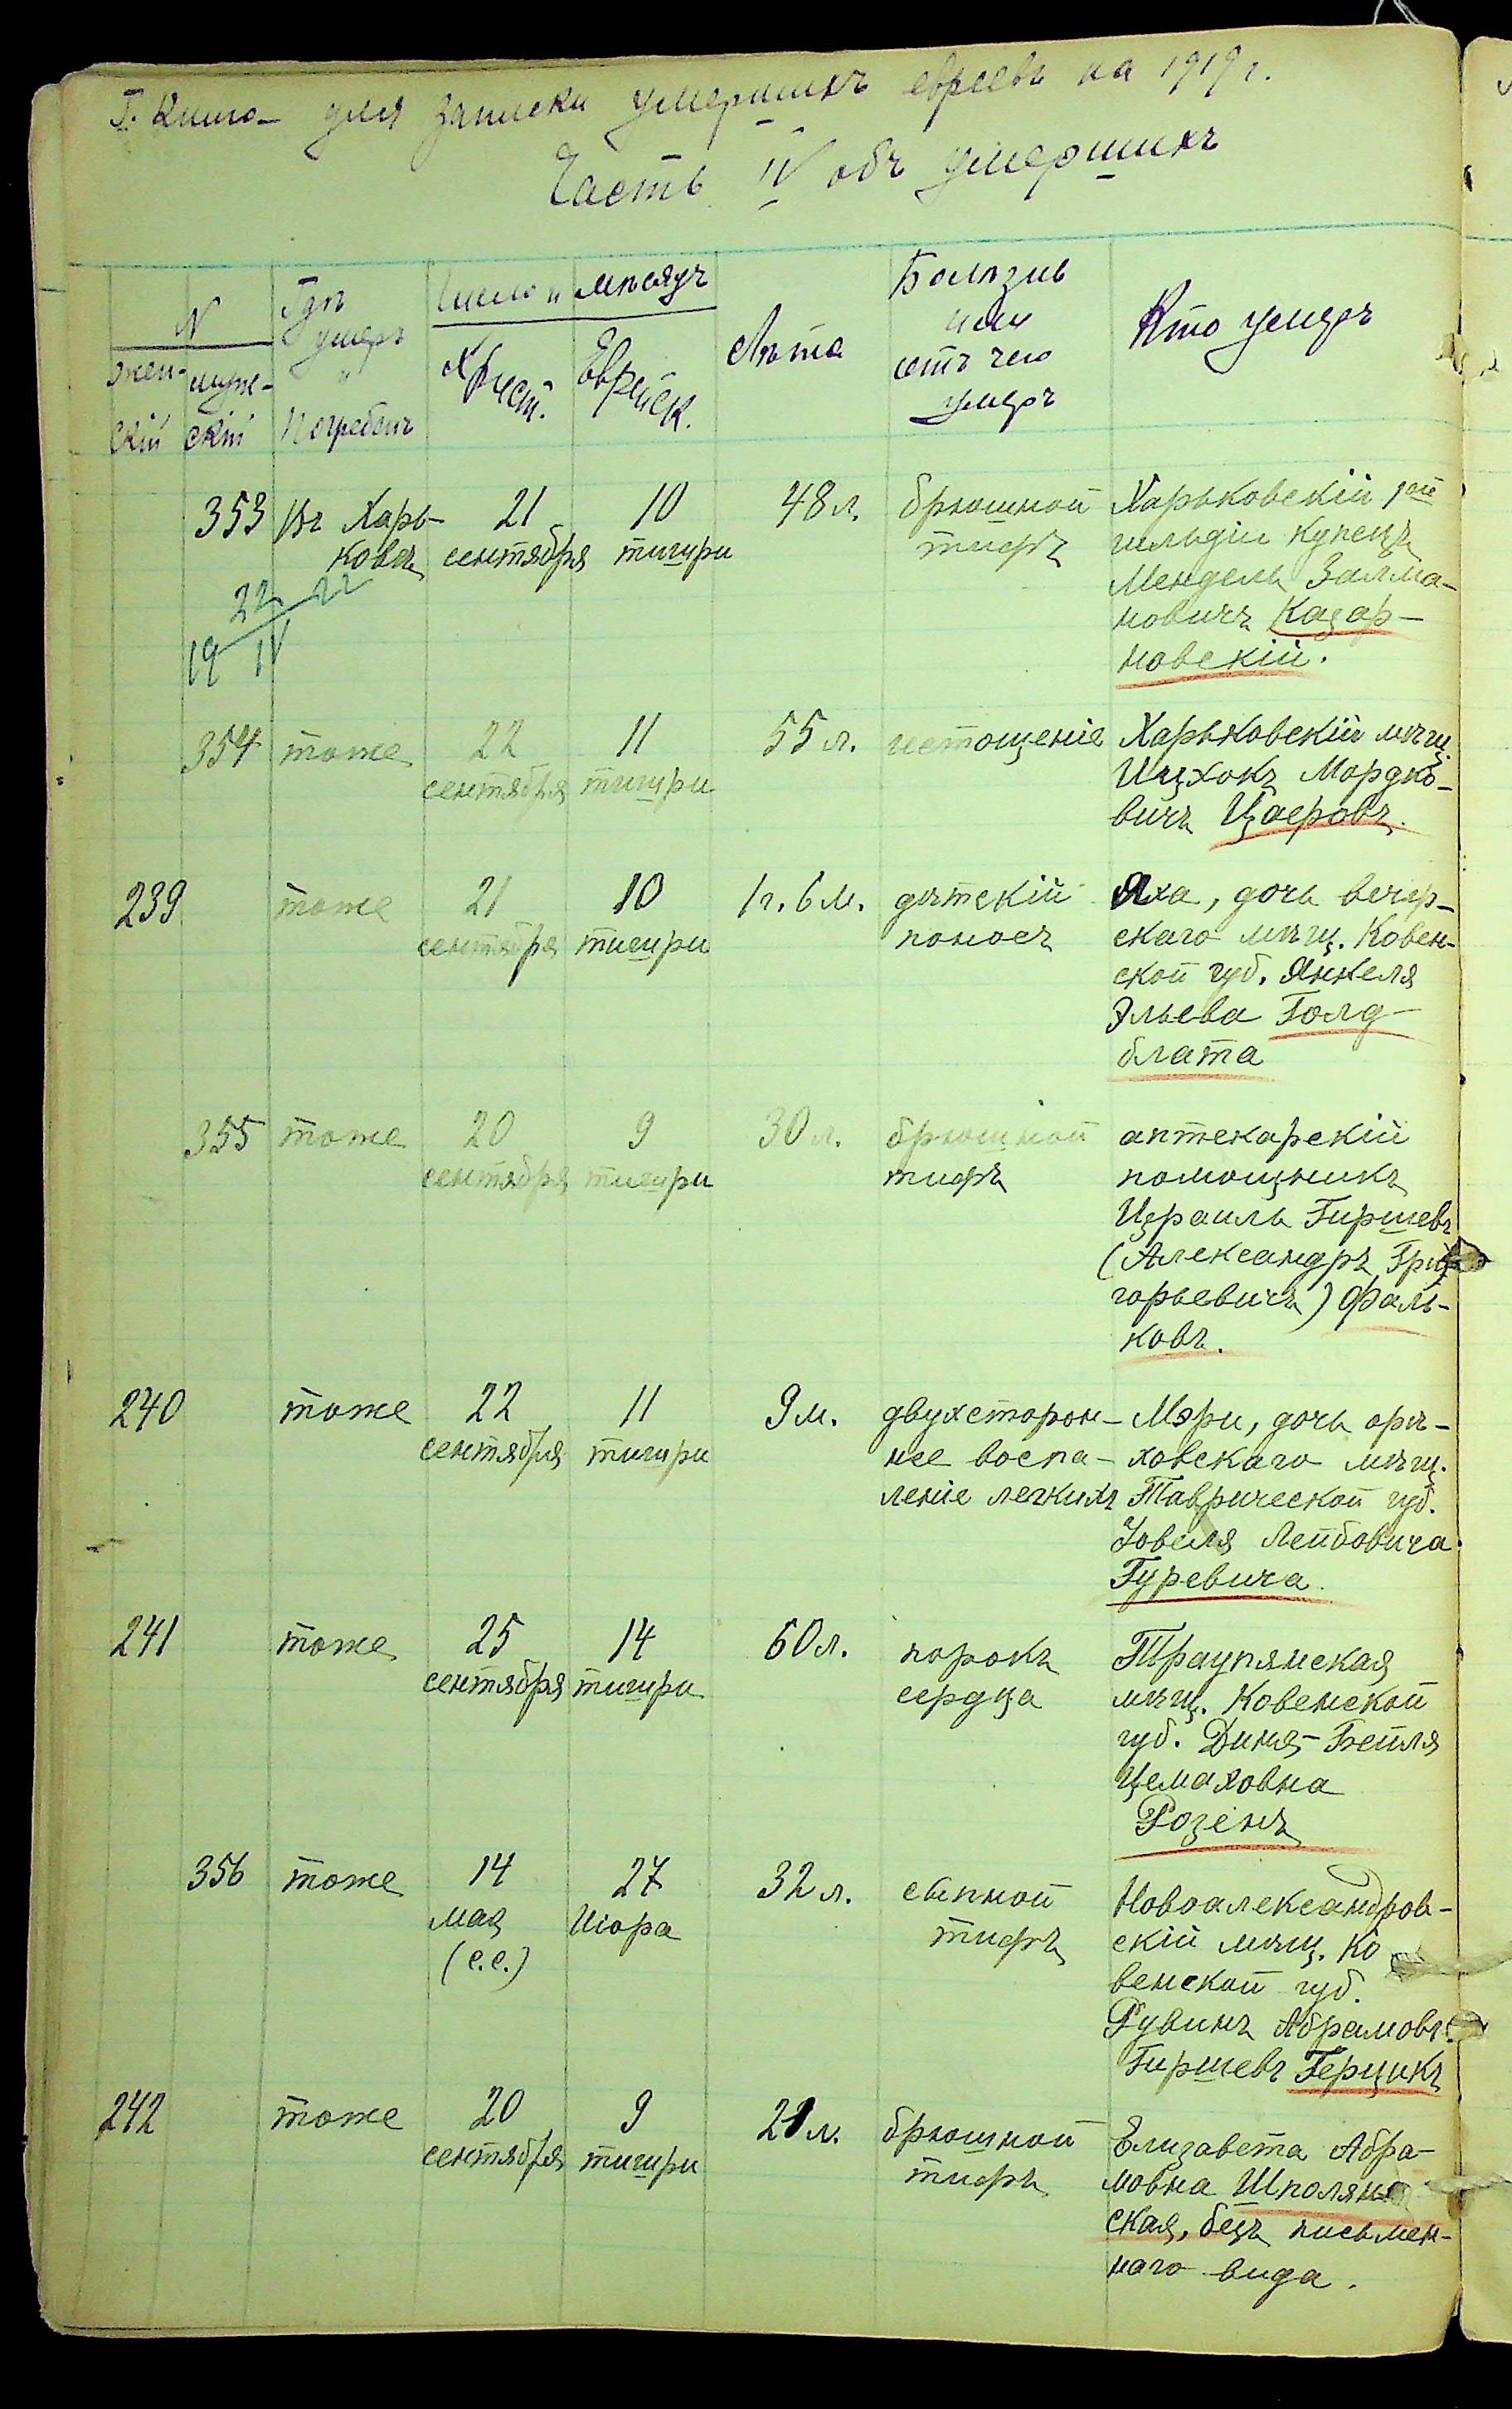 I. Книга для записки умершихъ евреевъ на 1919 г.
Часть IV объ умершихъ
N
жен-
скій
муже-
скій
Гдѣ
умеръ
и
Погребенъ
Число и мѣсяцъ
Христ.
Еврейск.
Лѣта
Болѣзнь
или
отъ чего
умеръ
Кто умеръ
353
въ Харь-
ковѣ
21
сентября
10
тишри
48 л.
брюшной
тифъ
Харьковскій 1ой
гильдіи купецъ
Мендель Залма-
новичъ Казар-
новскій.
22 22
19 IV
354
тоже
22
сентября
11
тишри
55 л.
истощеніе
Харьковскій мѣщ.
Ицхокъ Мордко-
вичъ Цаеровъ.
239
тоже
21
сентября
10
тишри
1 г. 6 м.
дѣтскій
поносъ
Яха, дочь
скаго мѣщ. Ковен-
ской губ. Янкеля
Эльева Голд-
блата
355
тоже
20
сентября
9
тишри
30 л.
брюшной
тифъ
аптекарскій
помощникъ
Израиль Гиршевъ
(Александръ Гри-
горьевичъ) Фаль-
ковъ.
240
тоже
22
сентября
11
тишри
9 м.
двухсторон-
нее воспа-
леніе легкихъ
Мэри, дочь орѣ-
ховскаго мѣщ.
Таврической губ.
Іовеля Лейбовича
Гуревича.
241
тоже
25
сентября
14
тишри
60 л.
порокъ
сердца
Траупянская
мѣщ. Ковенской
губ. Диня-Бейля
Цемаховна
Розенъ
356
тоже
14
мая
(с.с.)
27
Иіора
32 л.
сыпной
тифъ
Новоалександров-
скій мѣщ. Ко
венской губ.
Рувинъ Абрамовъ
Гиршевъ Герцикъ
242
тоже
20
сентября
9
тишри
21 л.
брюшной
тифъ
Елизавета Абра-
мовна Шполян
ская, безъ письмен-
наго вида.